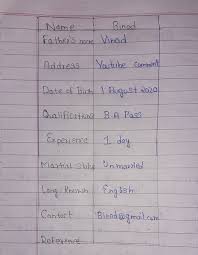 Name Binod
Father's name Vinod
Address Youtube comment
Date of Birth 1 August 2020
Qualification B A Pass
Experience 1 day
Marital Unmarried
Lang. Known English
Contact Binod@gmail.com
Reference